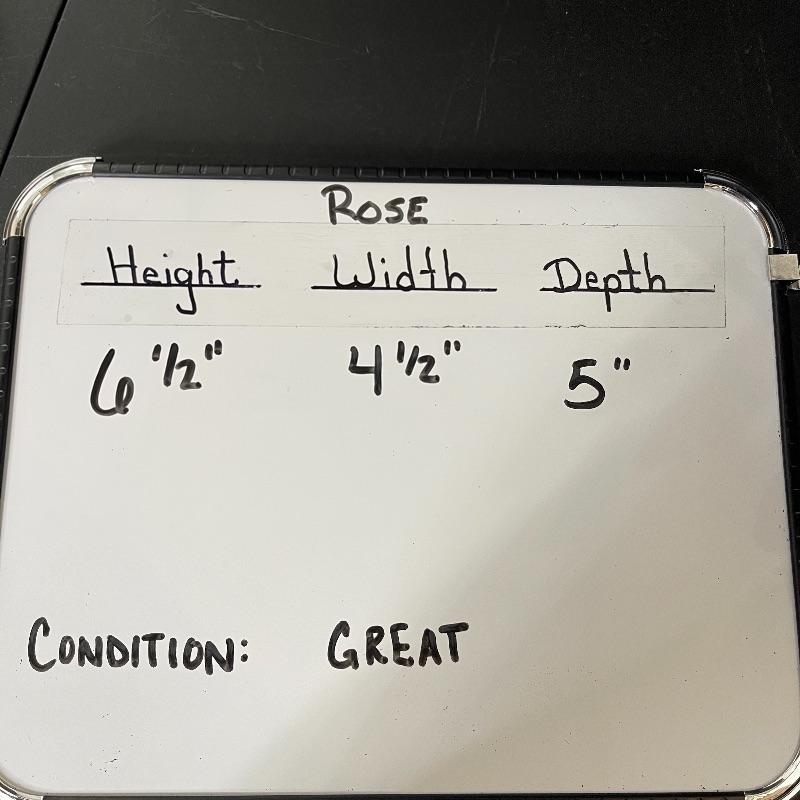 ROSE
Height Width Depth
6 1/2" 4 1/2" 5"
CONDITION: GREAT